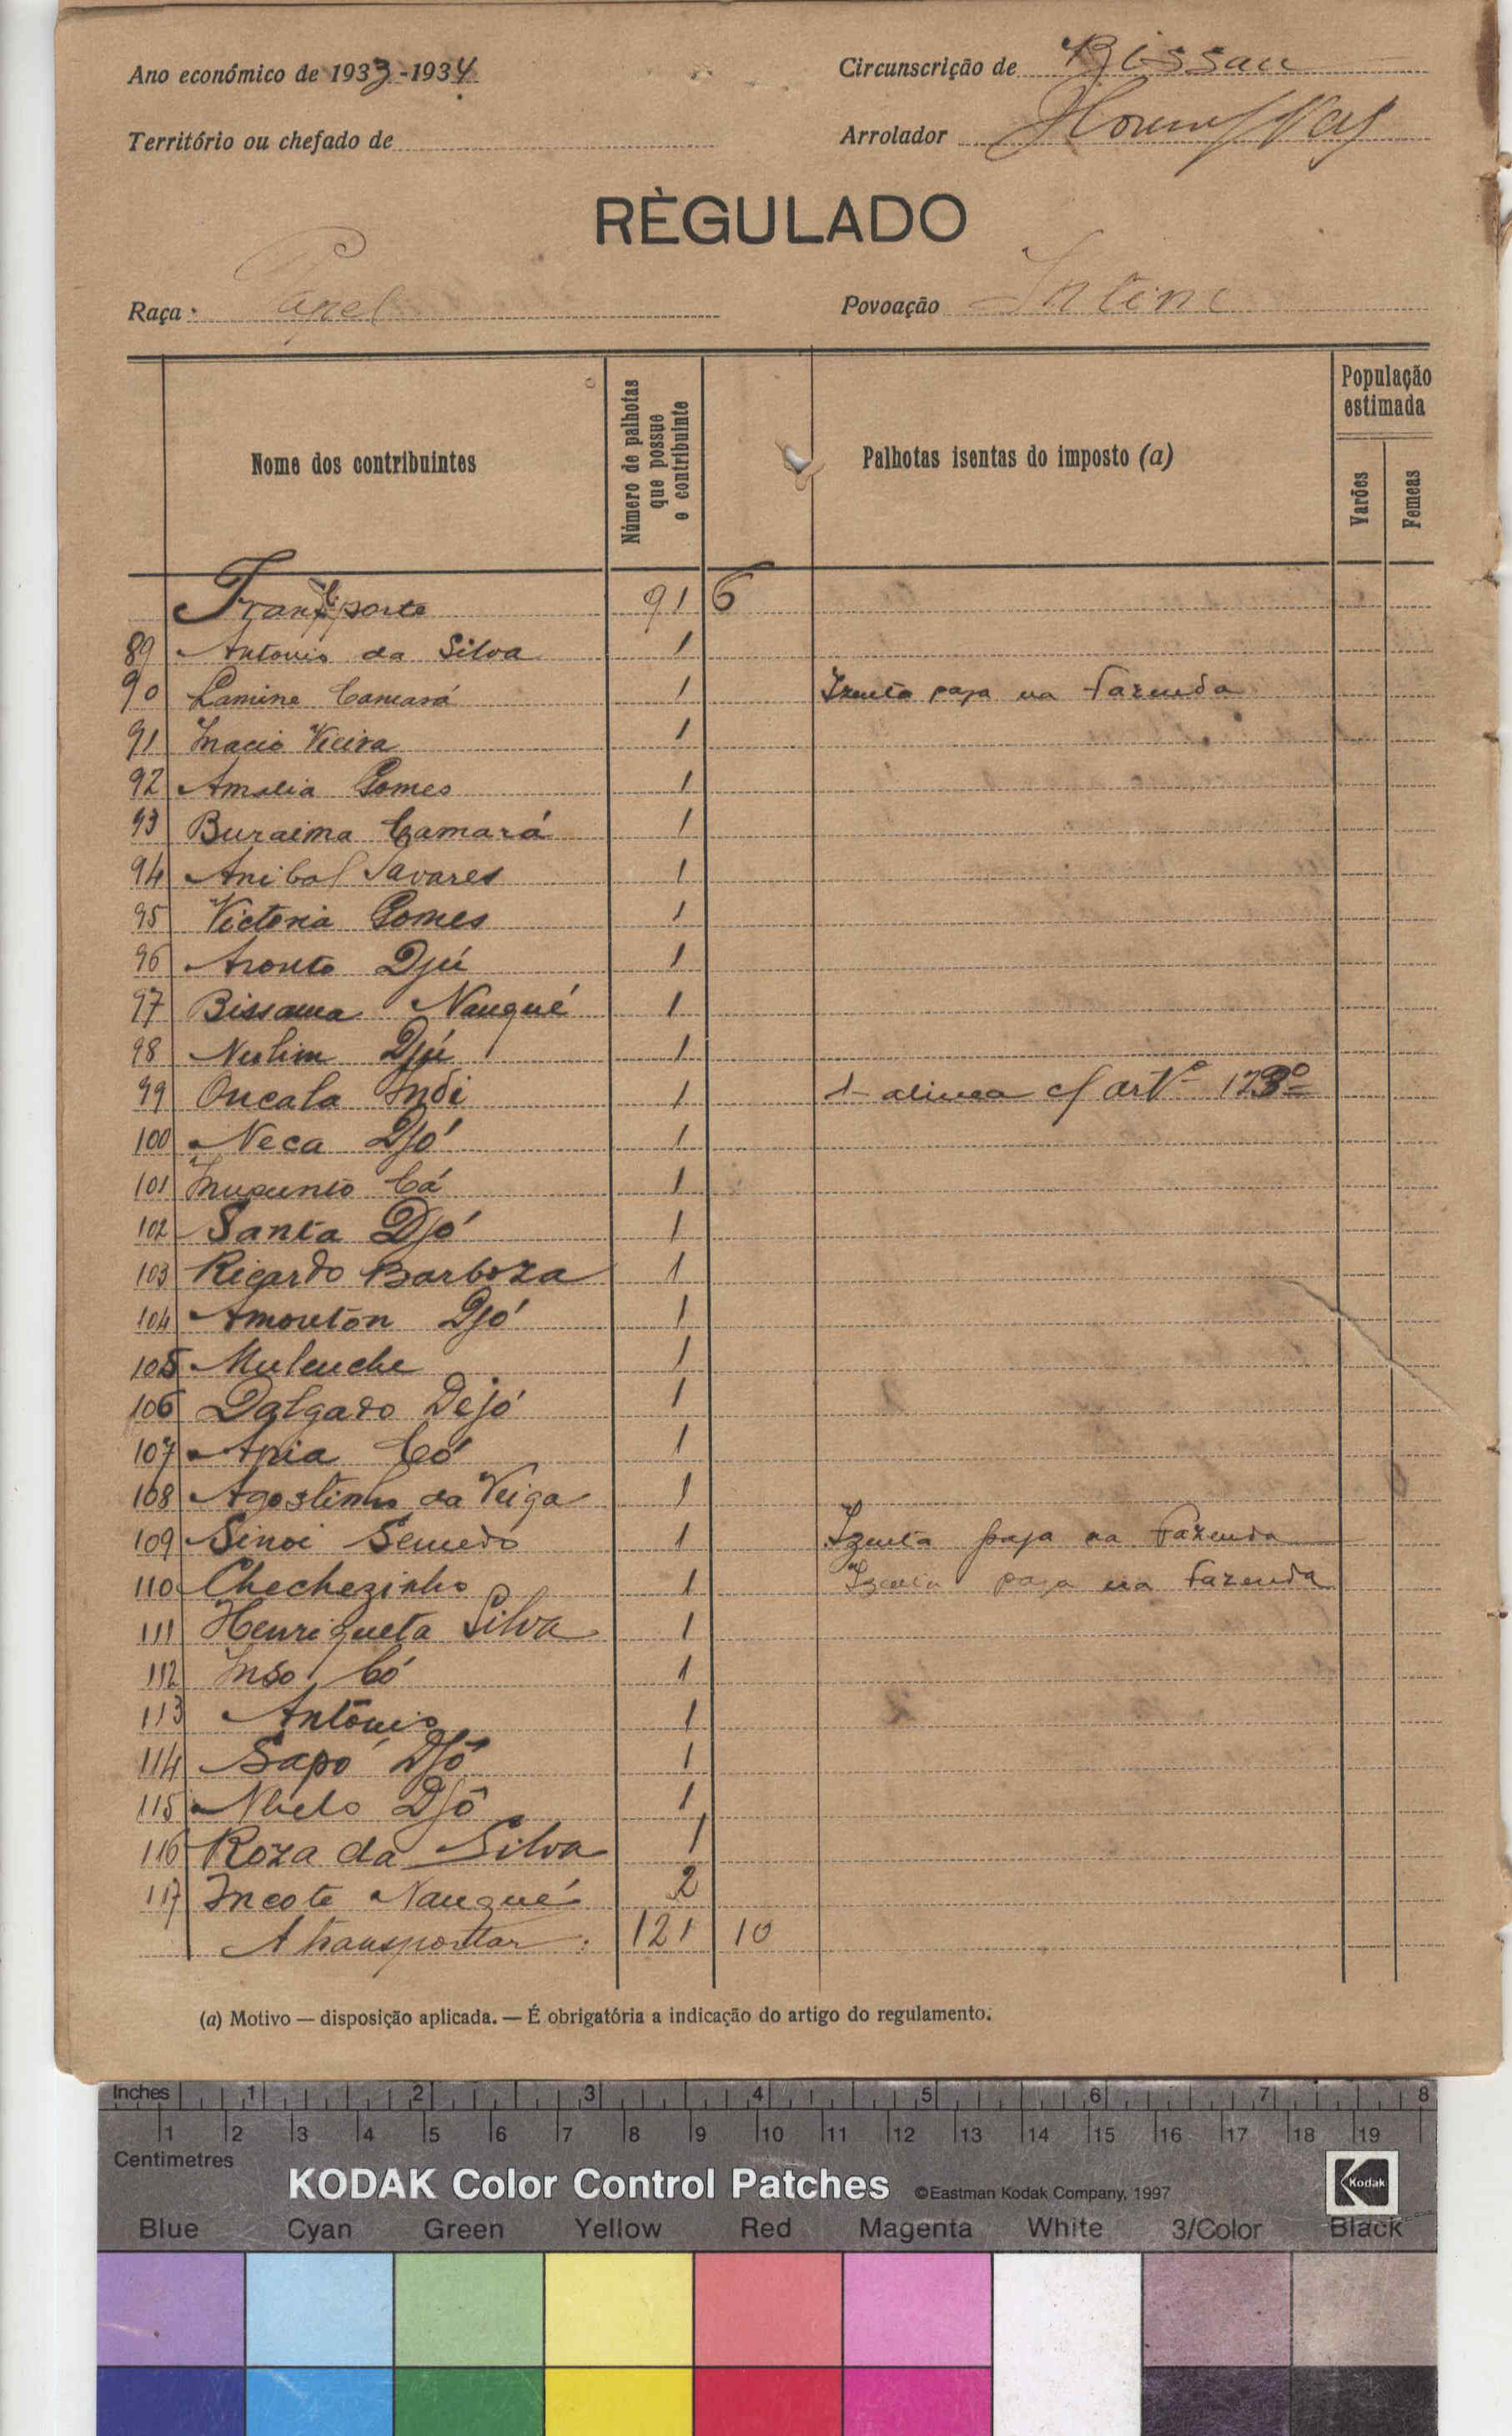 Ano económico de 1933-1934
Circunscrição de Bissau
Território ou chefado de
Arrolador
RÈGULADO
Raça: Papel
Povoação Intim
Nome dos contribuintes
Número de palhotas que possue o contribuinte
Palhotas isentas do imposto (a)
População estimada
Varões
Femeas
Transporte 91 6
89 Antonio da Silva 1
90 Lamine Camará 1 Izenta paga na fazenda
91 Inacio Vieira 1
92 Amalia Gomes 1
93 Buraima Camará 1
94 Anibal Tavares 1
95 Victoria Gomes 1
96 Aronto Djú 1
97 Bissama Nanqué 1
98 Nulim Djú 1
99 Oncala Indi 1 1 alinea c/ artº 123º
100 Neca Djó 1
101 Cá 1
102 Santa Djó 1
103 Ricardo Barboza 1
104 Amonton Djó 1
105 Muleuche 1
106 Dalgado Dejó 1
107 Ania Có 1
108 Agostinho da Veiga 1
109 Sinoi Semedo 1 Izenta paga na Fazenda
110 Chechezinho 1 Izenta paga na fazenda
111 Henriqueta Silva 1
112 Inso Có 1
113 António 1
114 Sapo Djô 1
115 Djô 1
116 Roza da Silva 1
117 Incote Nanqué 2
A transportar: 121 10
(a) Motivo — disposição aplicada. — É obrigatória a indicação do artigo do regulamento.
Inches 1 2 3 4 5 6 7 8
1 2 3 4 5 6 7 8 9 10 11 12 13 14 15 16 17 18 19
Centimetres
KODAK Color Control Patches ©Eastman Kodak Company, 1997 Kodak
Blue Cyan Green Yellow Red Magenta White 3/Color Black